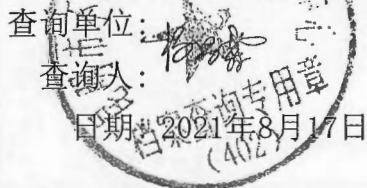 查询单位:
查询人:
日期: 2021年8月17日
档案查询专用章
(402)